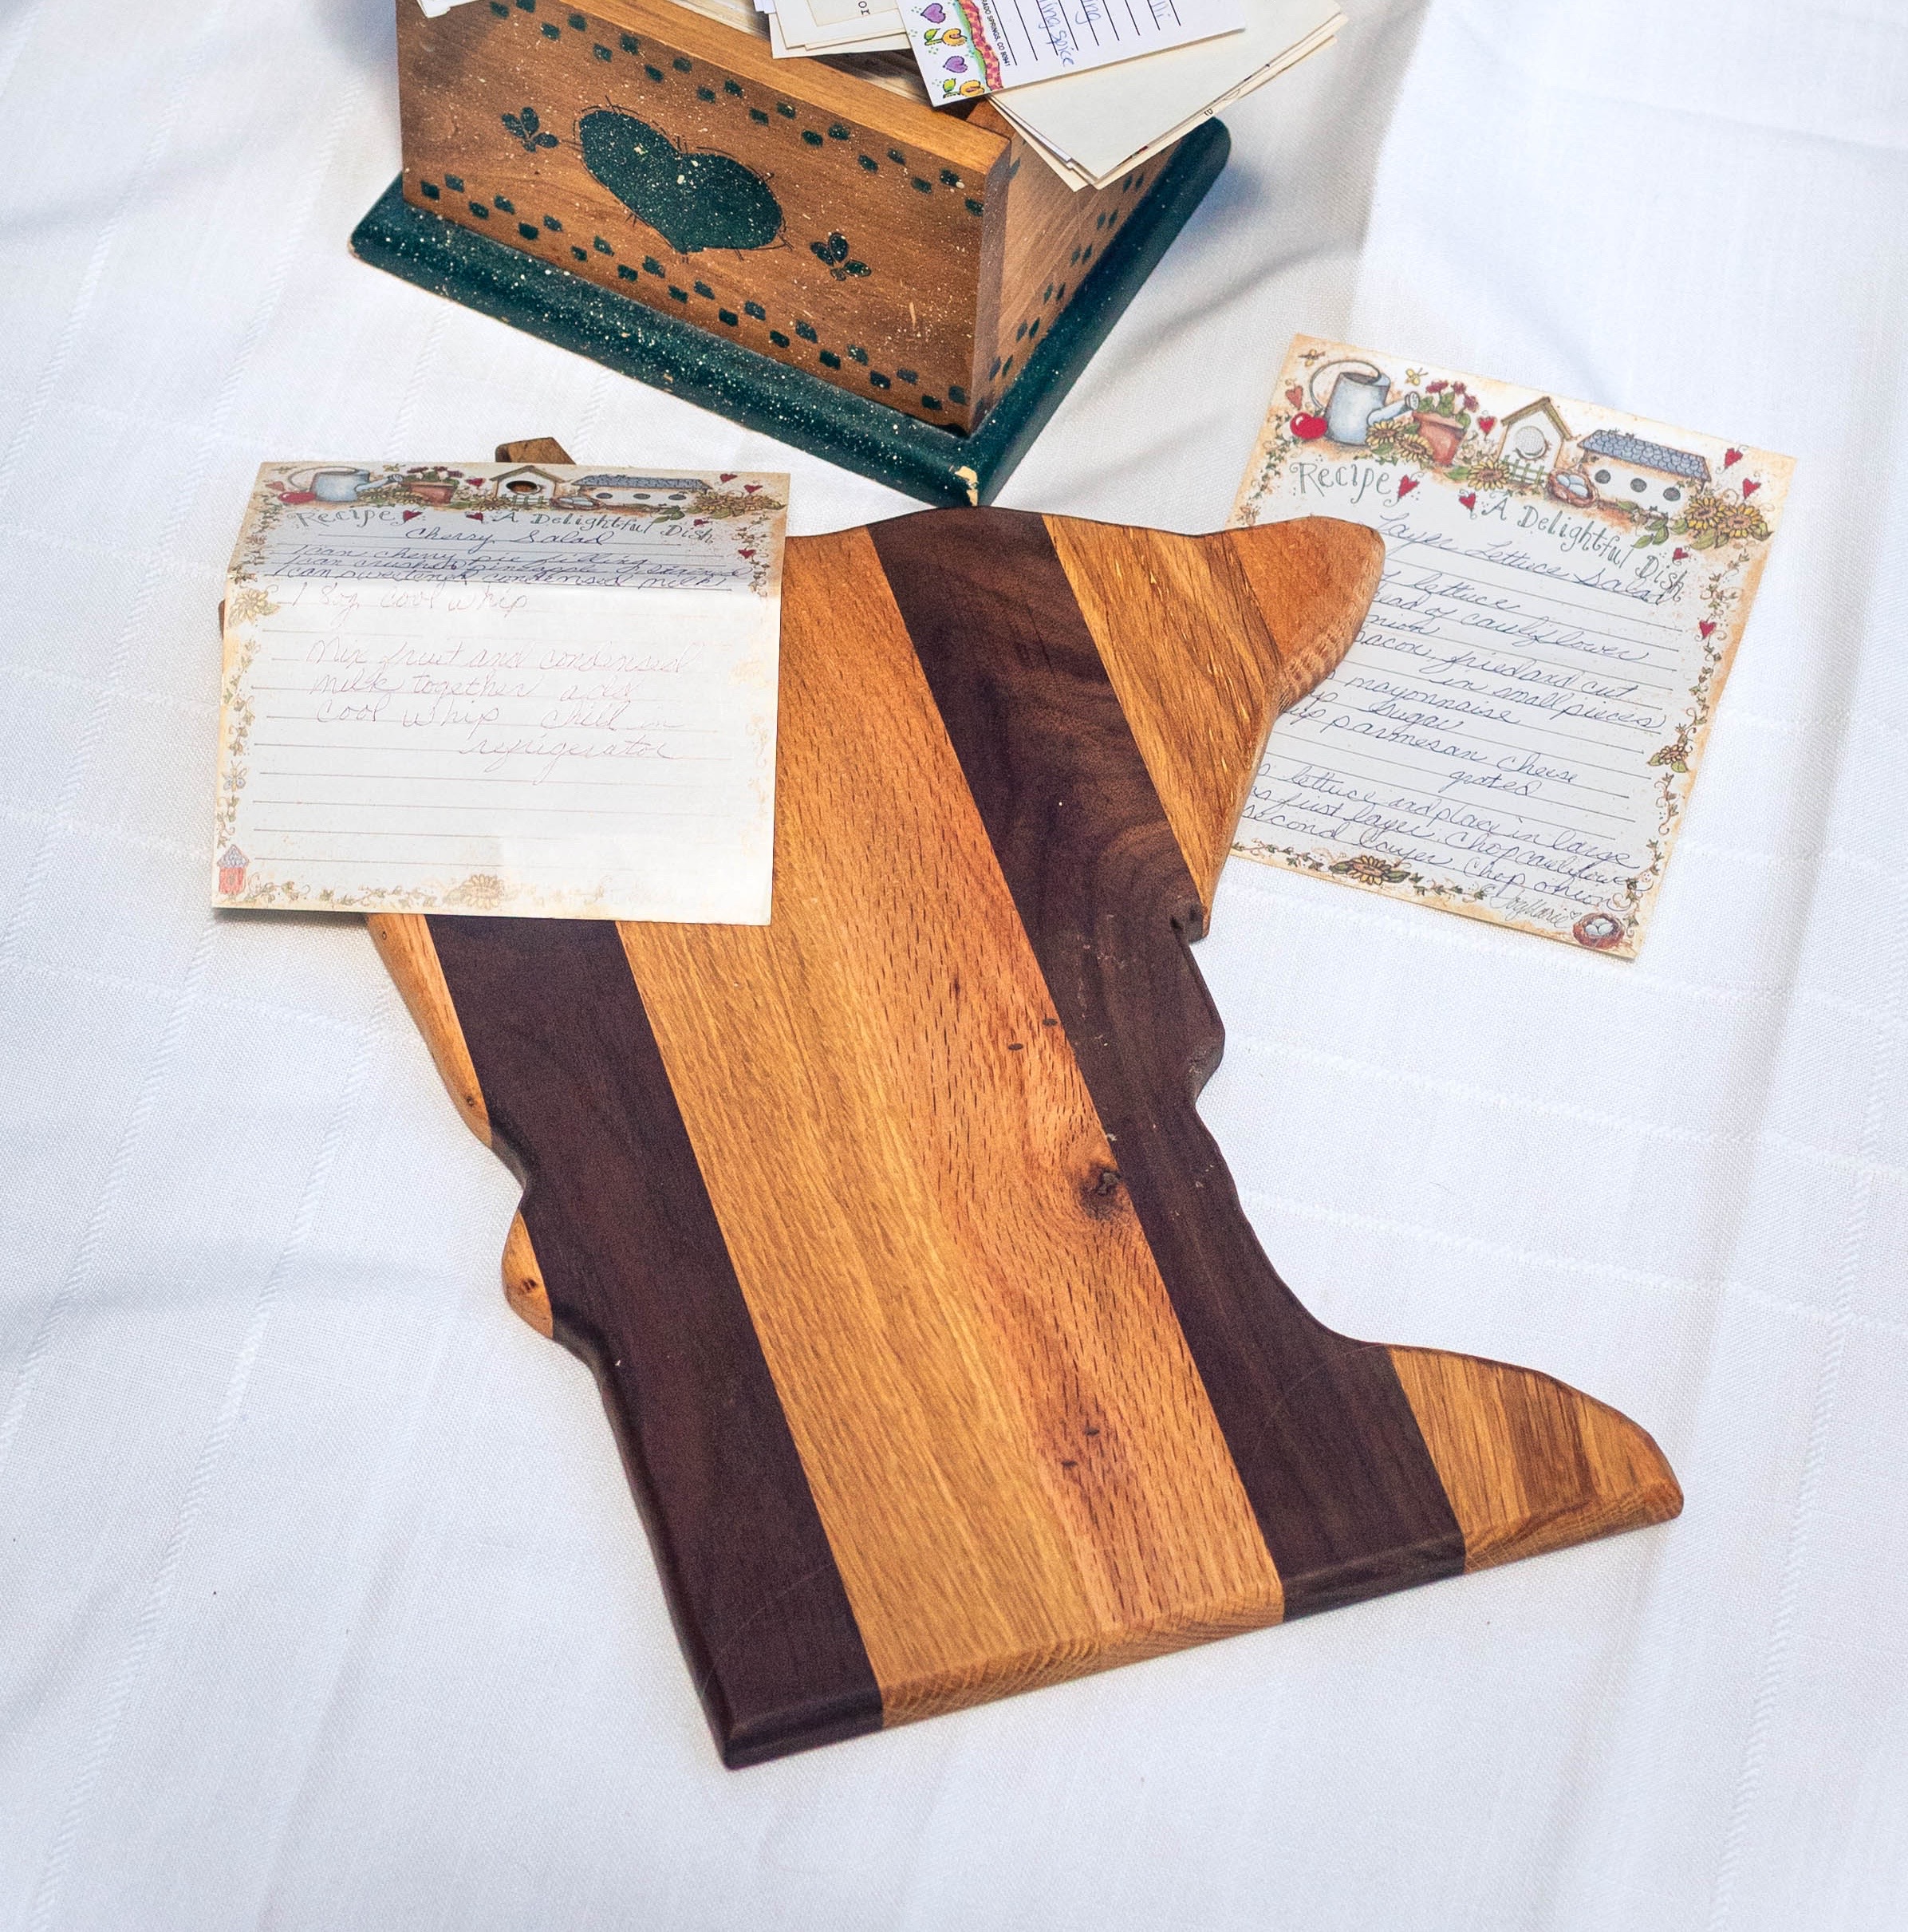 ing spice
ing
COLORADO SPRINGS, CO 80941
or
Recipe
A Delightful Dish
Cherry Salad
1 can cherry pie filling
1 can crushed pineapple drained
1 can sweetened condensed milk
1 8oz cool whip
Mix fruit and condensed
milk together add
cool whip chill in
refrigerator
Recipe
A Delightful Dish
Layer Lettuce Salad
lettuce
head of cauliflower
onion
bacon fried and cut
in small pieces
mayonnaise
sugar
parmesan cheese
grated
lettuce and place in large
as first layer. Chop cauliflower
second layer Chop onion